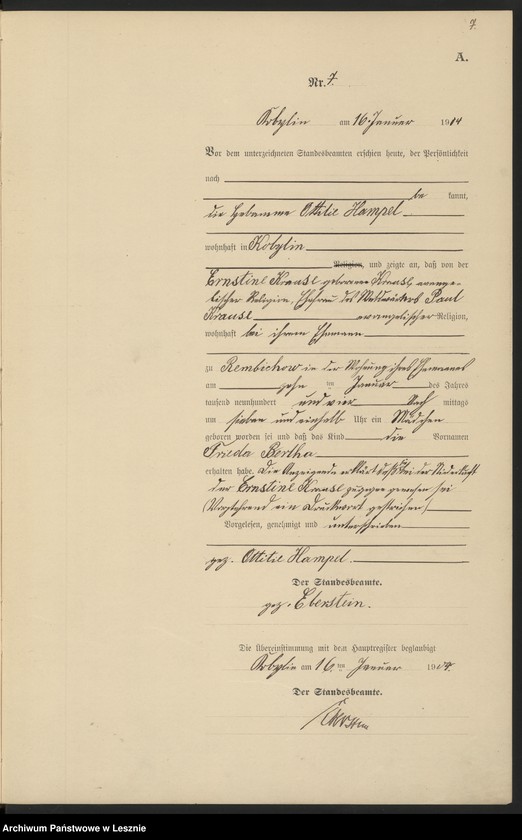 7.
A.
Nr. 7.
Kobylin am 16. Januar 1904
Vor dem unterzeichneten Standesbeamten erschien heute, der Persönlichkeit
nach
be kannt,
die Hebamme Ottilie Hampel
wohnhaft in Kobylin
Religion, und zeigte an, daß von der
Ernstine Krause geborenen Krause, evange-
lischer Religion, Ehefrau des Paul
Krause evangelischer Religion,
wohnhaft bei ihrem Ehemann
zu Rembichow in der Wohnung ihres Ehemannes
am zehn ten Januar des Jahres
tausend neunhundert und vier Nach mittags
um sieben und einhalb Uhr ein Mädchen
geboren worden sei und daß das Kind die Vornamen
Frieda Bertha
erhalten habe. Die Anzeigende erklärt daß sie bei der Niederkunft
der Ernstine Krause zugegen gewesen sei
(Vorstehend ein Druckwort gestrichen)
Vorgelesen, genehmigt und unterschrieben
gez. Ottilie Hampel.
Der Standesbeamte.
gez. Eberstein.
Die Übereinstimmung mit dem Hauptregister beglaubigt
Kobylin am 16ten Januar 1904.
Der Standesbeamte.
Archiwum Państwowe w Lesznie